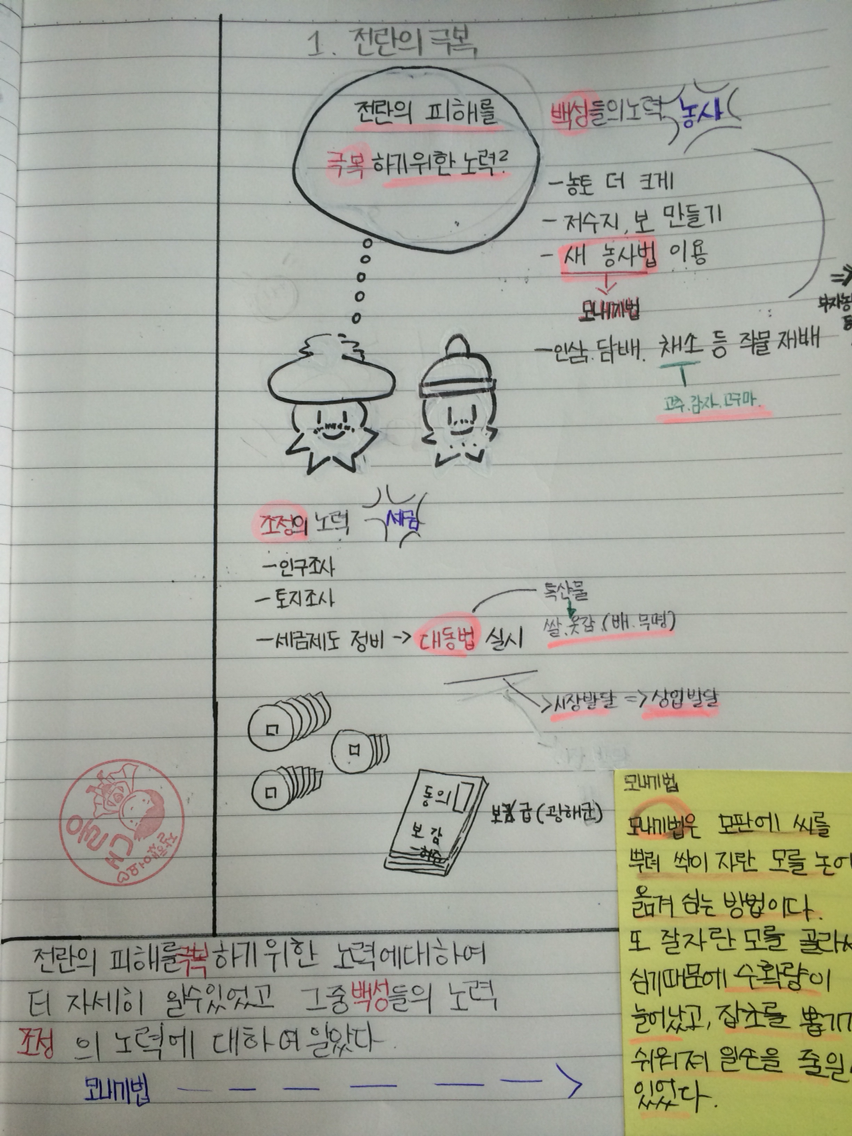 1. 전란의 극복
전란의 피해를
극복하기위한 노력?
백성들의노력 농사
-농토 더 크게
-저수지, 보 만들기
-새 농사법 이용
모내기법
-인삼. 담배. 채소 등 작물 재배
고추. 감자. 고구마.
조정의 노력 세금
-인구조사
-토지조사
-세금제도 정비 -> 대동법 실시
특산물
쌀.옷감 (배.무명)
>시장발달 => 상업발달
동의
보감
-허준
보급 (광해군)
모내기법
모내기법은 모판에 씨를
뿌려 싹이 자란 모를 논에
옮겨 심는 방법이다.
또 잘자란 모를 골라서
심기때문에 수확량이
늘어났고, 잡초를 뽑기가
쉬워져 일손을 줄일
있었다.
전란의 피해를극복하기위한 노력에대하여
더 자세히 알수있었고 그중백성들의 노력
조정 의 노력에 대하여알았다.
모내기법